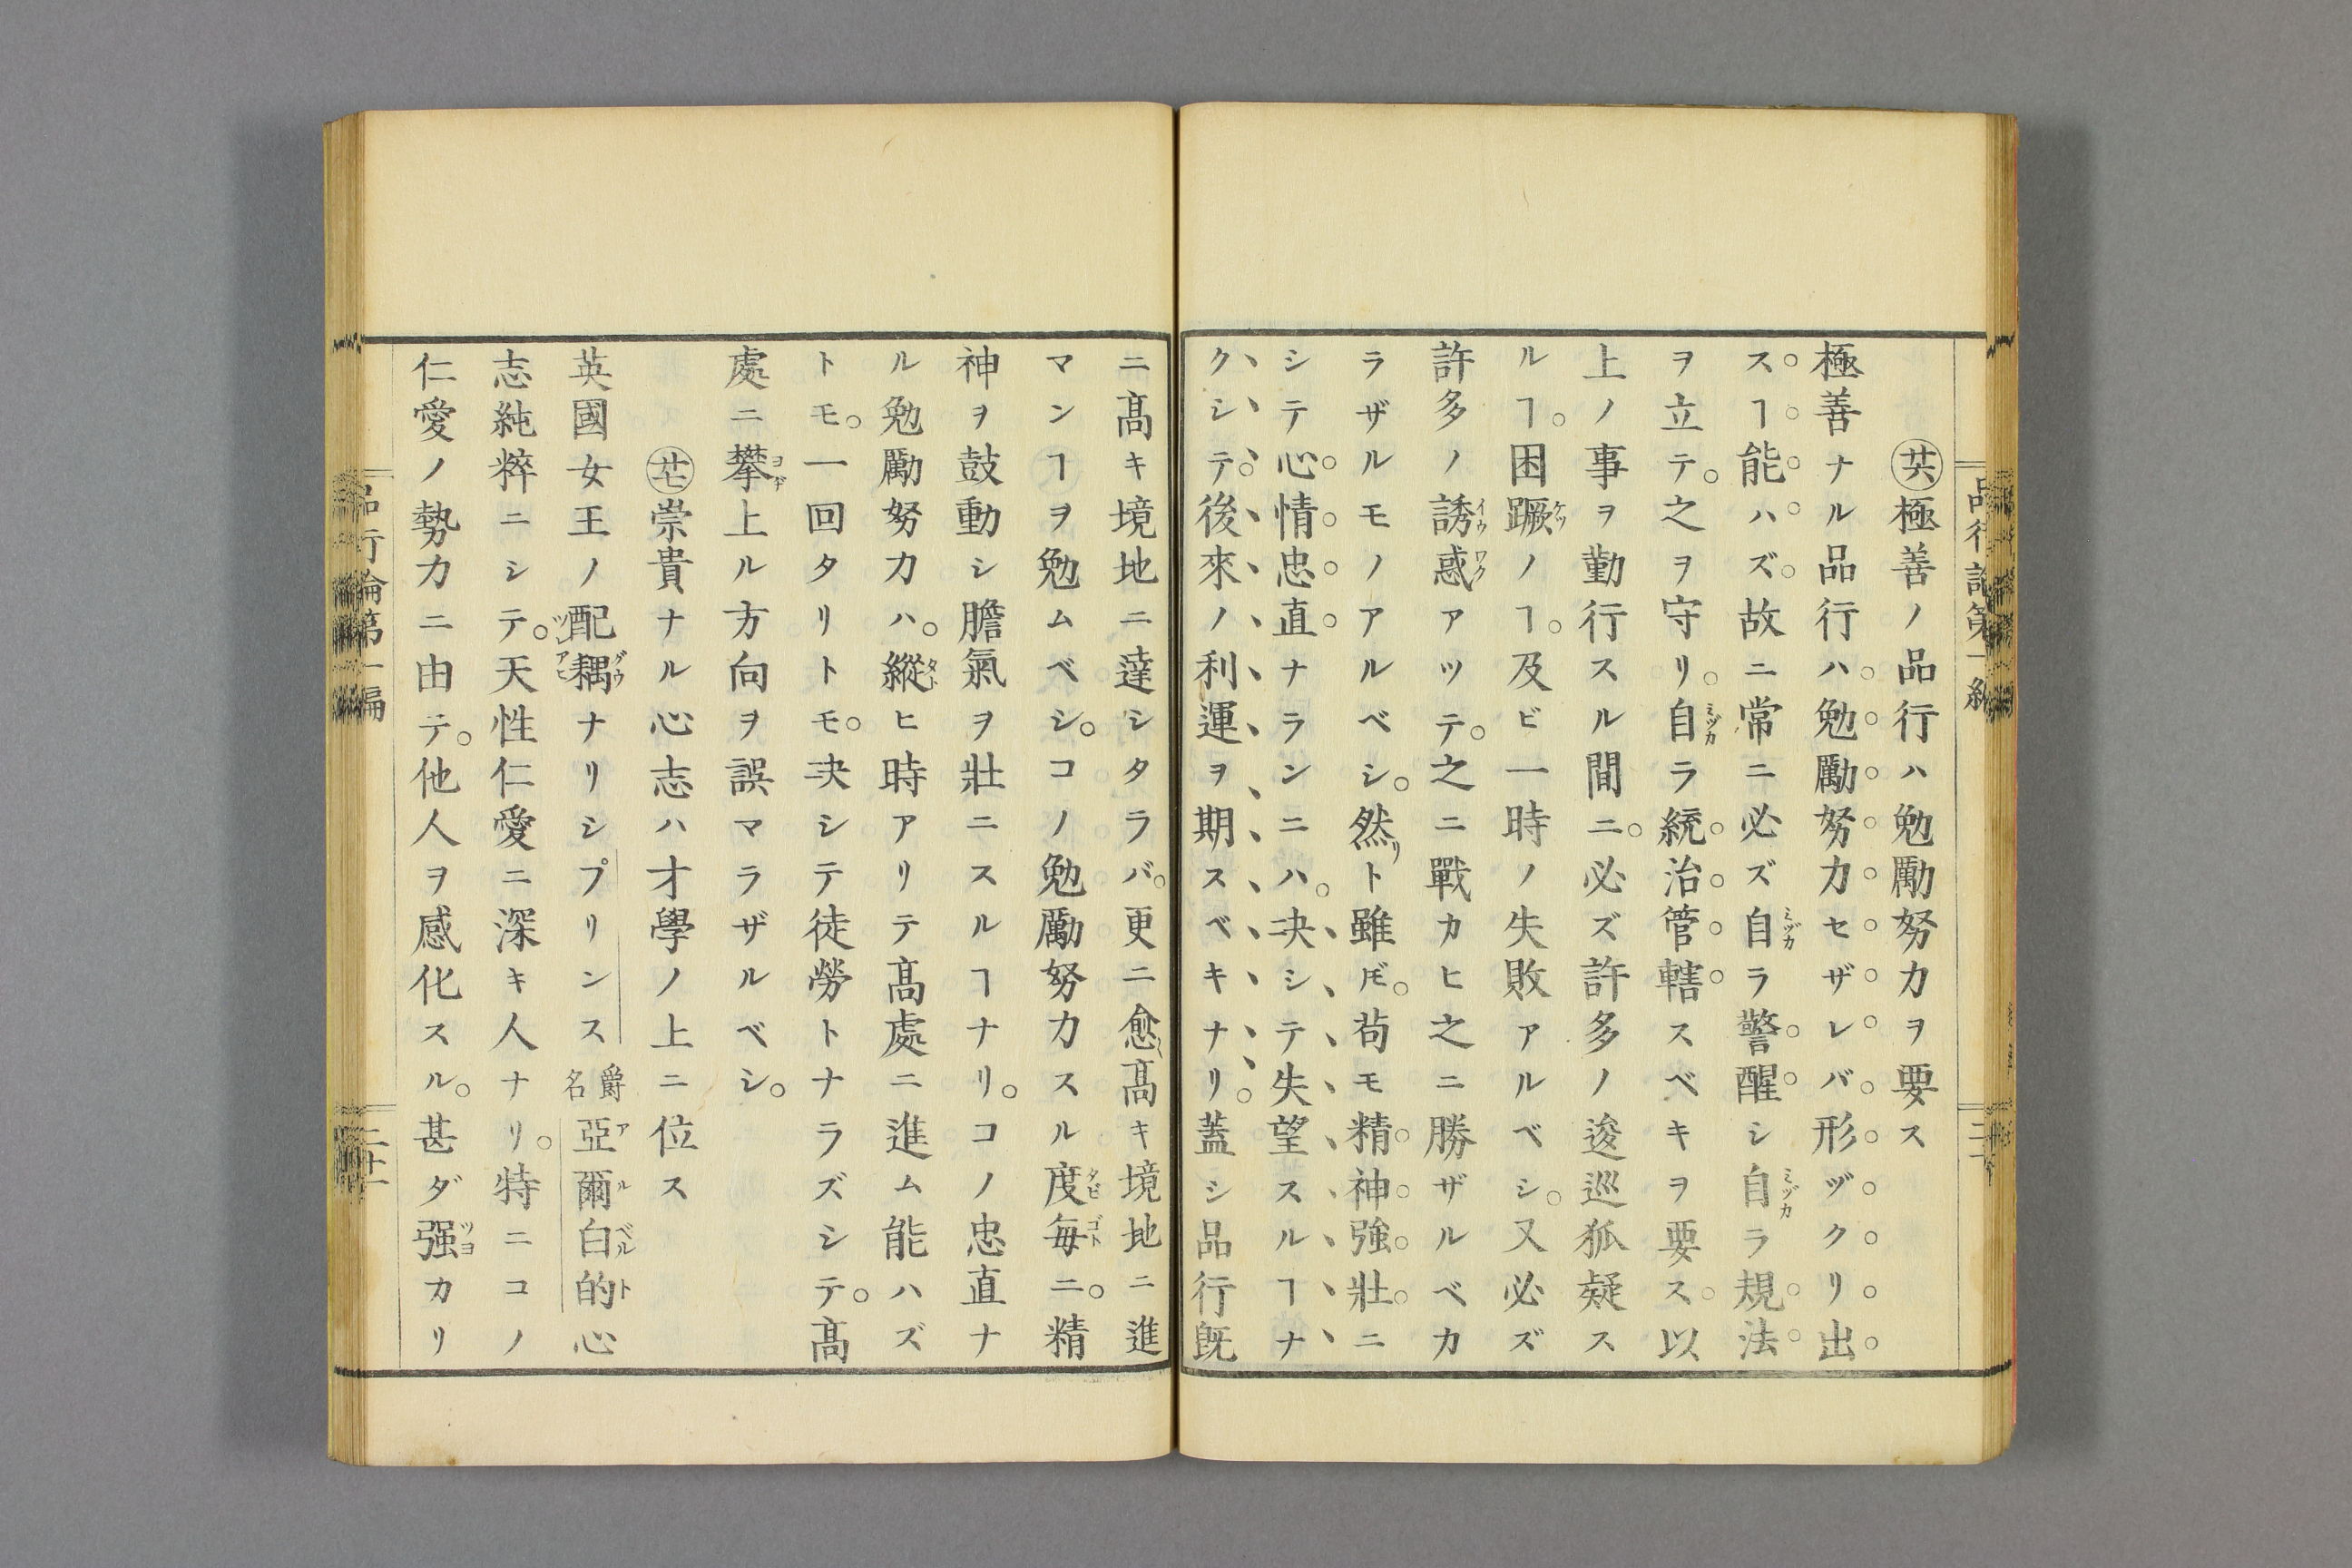 品行論第一編
㊅極善ノ品行ハ勉勵努力ヲ要ス
極善ナル品行ハ。勉勵努力セザレバ形ヅクリ出
スヿ能ハズ。故ニ常ニ必ズ自ラ警醒シ自ラ規法
ヲ立テ。之ヲ守リ。自ラ統治管轄スベキヲ要ス。以
上ノ事ヲ勤行スル間ニ。必ズ許多ノ逡巡狐疑ス
ルヿ。困蹶ノヿ。及ビ一時ノ失敗アルベシ。又必ズ
許多ノ誘惑アツテ。之ニ戰カヒ之ニ勝ザルベカ
ラザルモノアルベシ。然リト雖𪜈。苟モ精神強壯ニ
シテ心情忠直ナランニハ。决シテ失望スルヿナ
クシテ。後來ノ利運ヲ期スベキナリ。蓋シ品行既
ニ髙キ境地ニ達シタラバ。更ニ愈〻髙キ境地ニ進
マンヿヲ勉ムベシ。コノ勉勵努力スル度毎ニ。精
神ヲ鼓動シ膽氣ヲ壯ニスルヿナリ。コノ忠直ナ
ル勉勵努力ハ。縱ヒ時アリテ髙處ニ進ム能ハズ
トモ。一回タリトモ。决シテ徒勞トナラズシテ。髙
處ニ攀上ル方向ヲ誤マラザルベシ。
㊆崇貴ナル心志ハ才學ノ上ニ位ス
英國女王ノ配耦ナリシプリンス爵名亞爾白的心
志純粹ニシテ。天性仁愛ニ深キ人ナリ。特ニコノ
仁愛ノ勢力ニ由テ。他人ヲ感化スル。甚ダ强カリ
品行論第一編
二十一